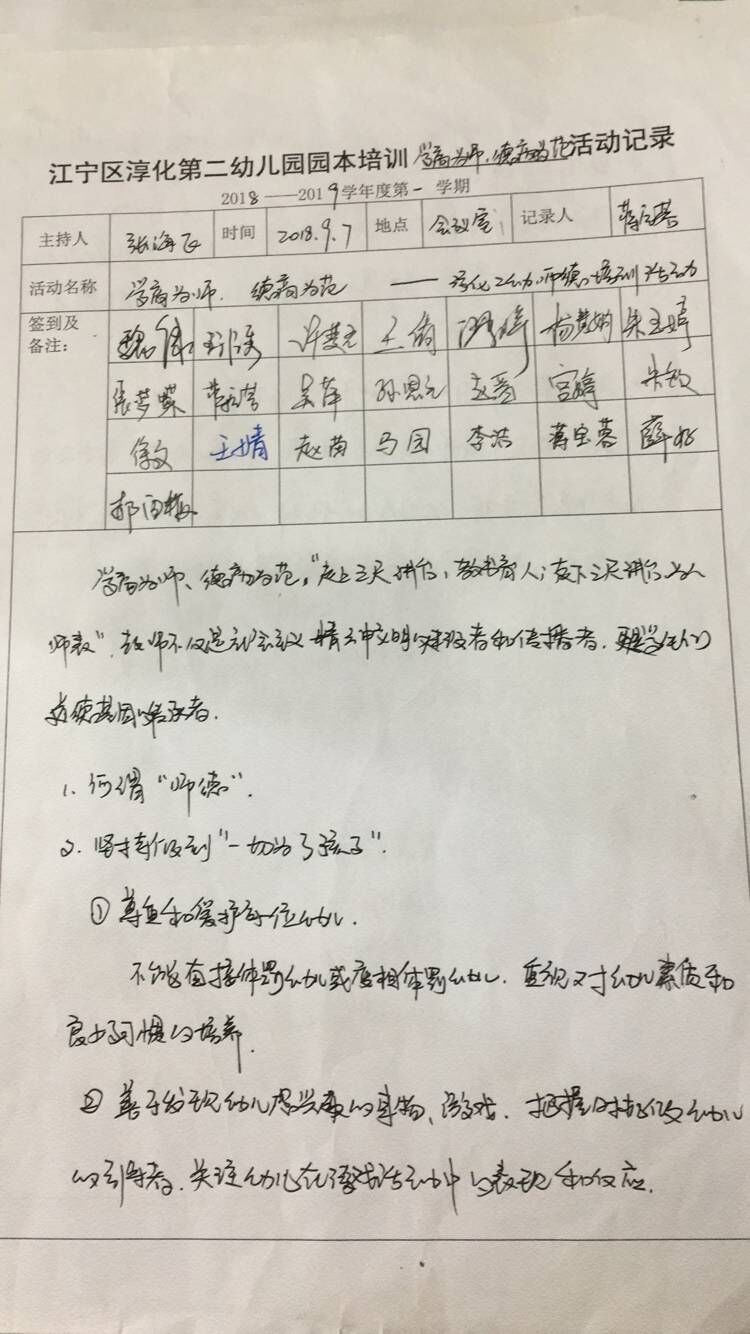 江宁区淳化第二幼儿园园本培训 学高为师、德高为范 活动记录
2018——2019学年度第一 学期
主持人 张海飞 时间 2018.9.7 地点 会议室 记录人
活动名称 学高为师、德高为范 —— 淳化二幼师德培训活动
签到及
备注:
魏 许 王 杨 朱玉婷
张梦蝶 吴萍 孙思元 赵 宫婷 朱敏
徐文 王婧 赵茜 马园 李洁 蒋宝蓉 薛
郝
学高为师、德高为范,“座上三尺讲台,教书育人;走下三尺讲台,为人
师表”,教师不仅是社会主义精神文明的建设者和传播者,更是学生们
道德基因的传承者.
1. 何谓“师德”.
2. 坚持做到“一切为了孩子”.
① 尊重和爱护每一位幼儿.
不能直接体罚幼儿或变相体罚幼儿.重视对幼儿素质和
良好习惯的培养.
② 善于发现幼儿感兴趣的事物、游戏,把握时机做幼儿
的引导者.关注幼儿在游戏活动中的表现和反应.